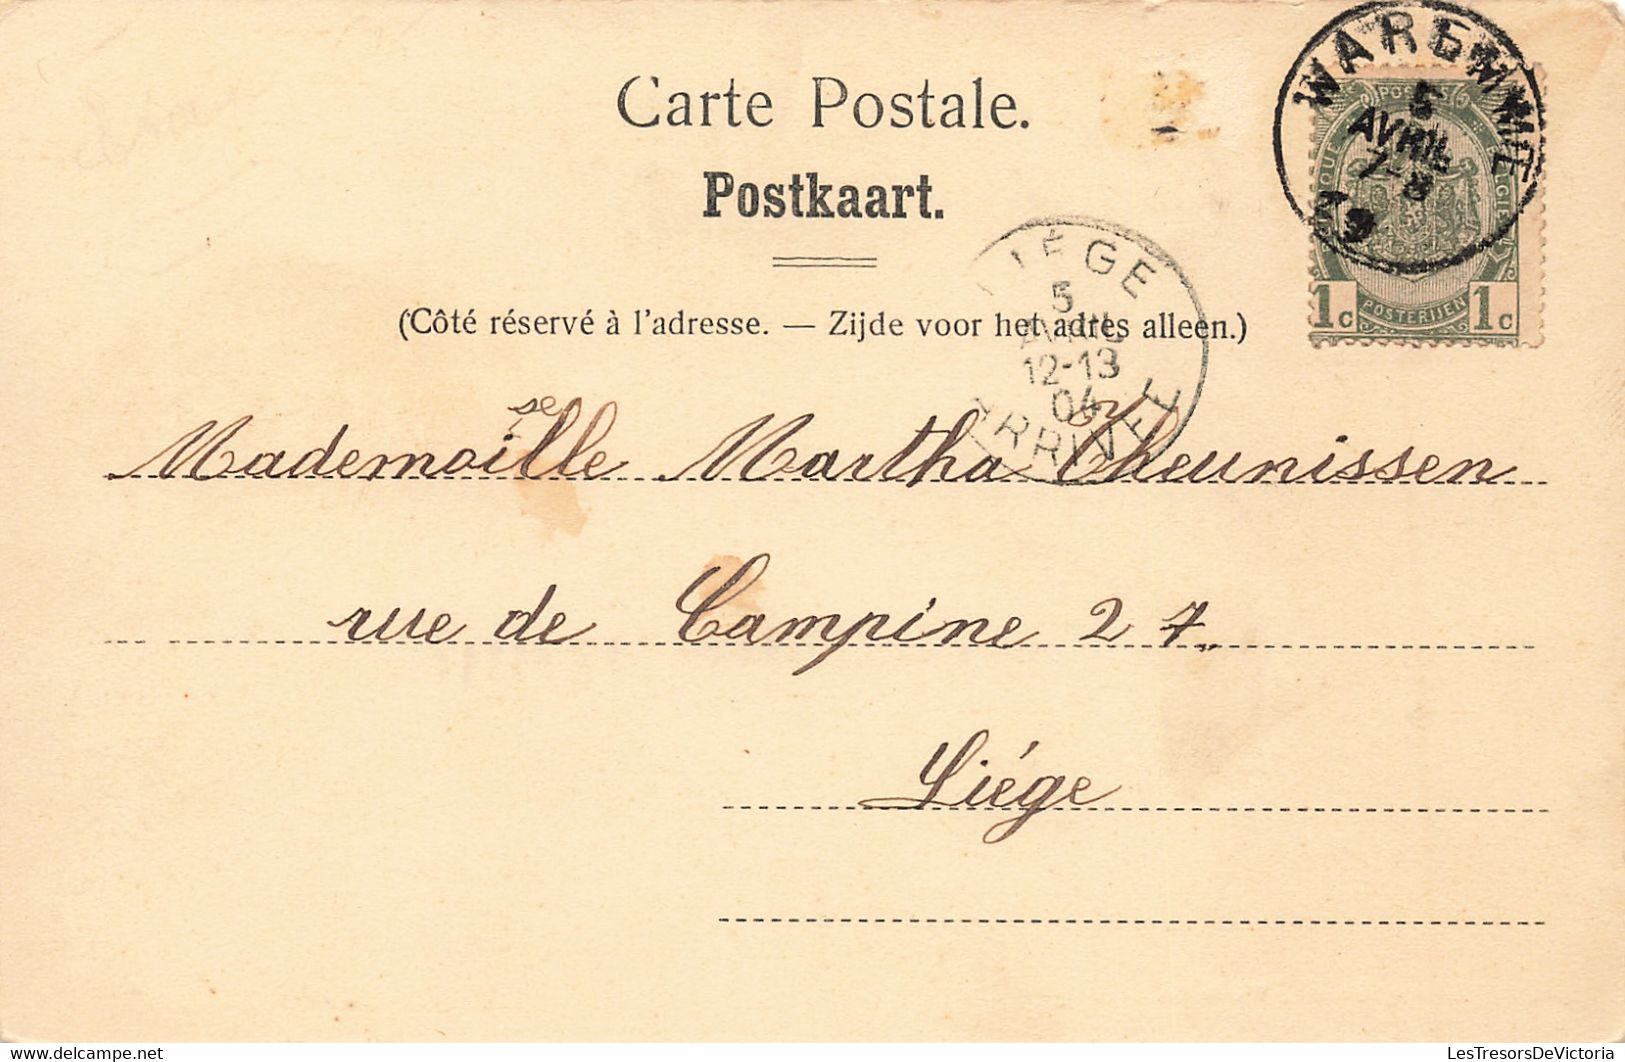 Carte Postale.
Postkaart.
(Côté réservé à l'adresse. — Zijde voor het adres alleen.)
WAREMME
5
AVRIL
7-8
POSTES
POSTERIJEN
1c 1c
LIÉGE
5
AVRIL
12-13
04
ARRIVÉE
se
Mademoille Martha Theunissen
rue de Campine 27
Liége
delcampe.net
LesTresorsDeVictoria